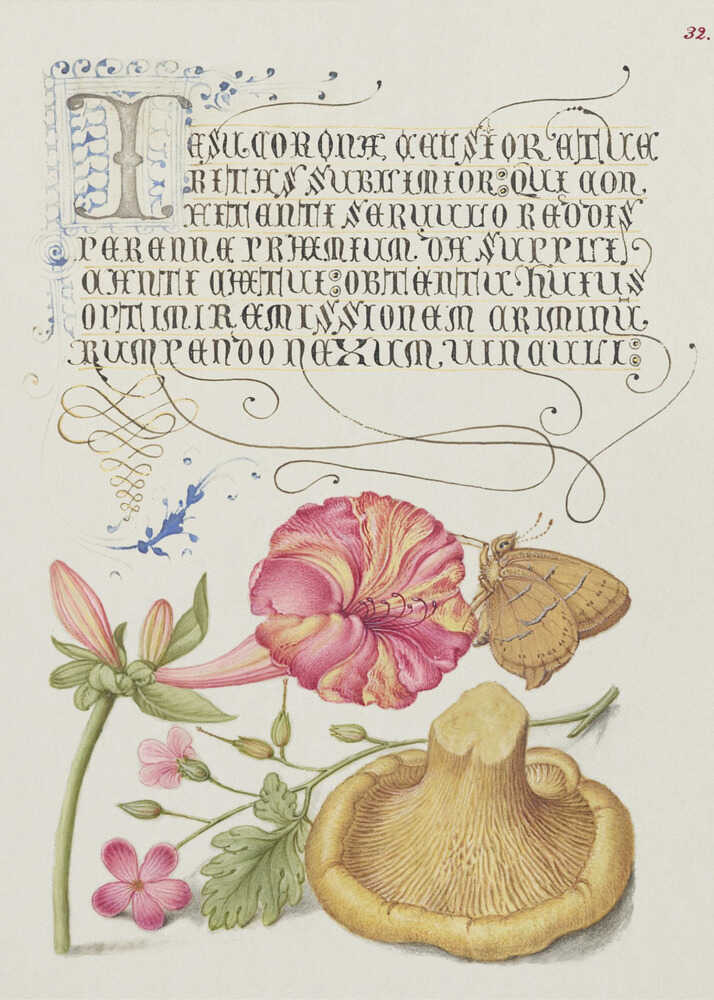 32.
IESU CORONA CELSIOR ET VE
RITAS SUBLIMIOR: QUI CON
FITENTI SERVULO REDDIS
PERENNE PRÆMIUM. DA SUPPLI
CANTI CÆTUI: OBTENTU HUIUS
OPTIMI REMISSIONEM CRIMINŪ
RUMPENDO NEXUM VINCULI: